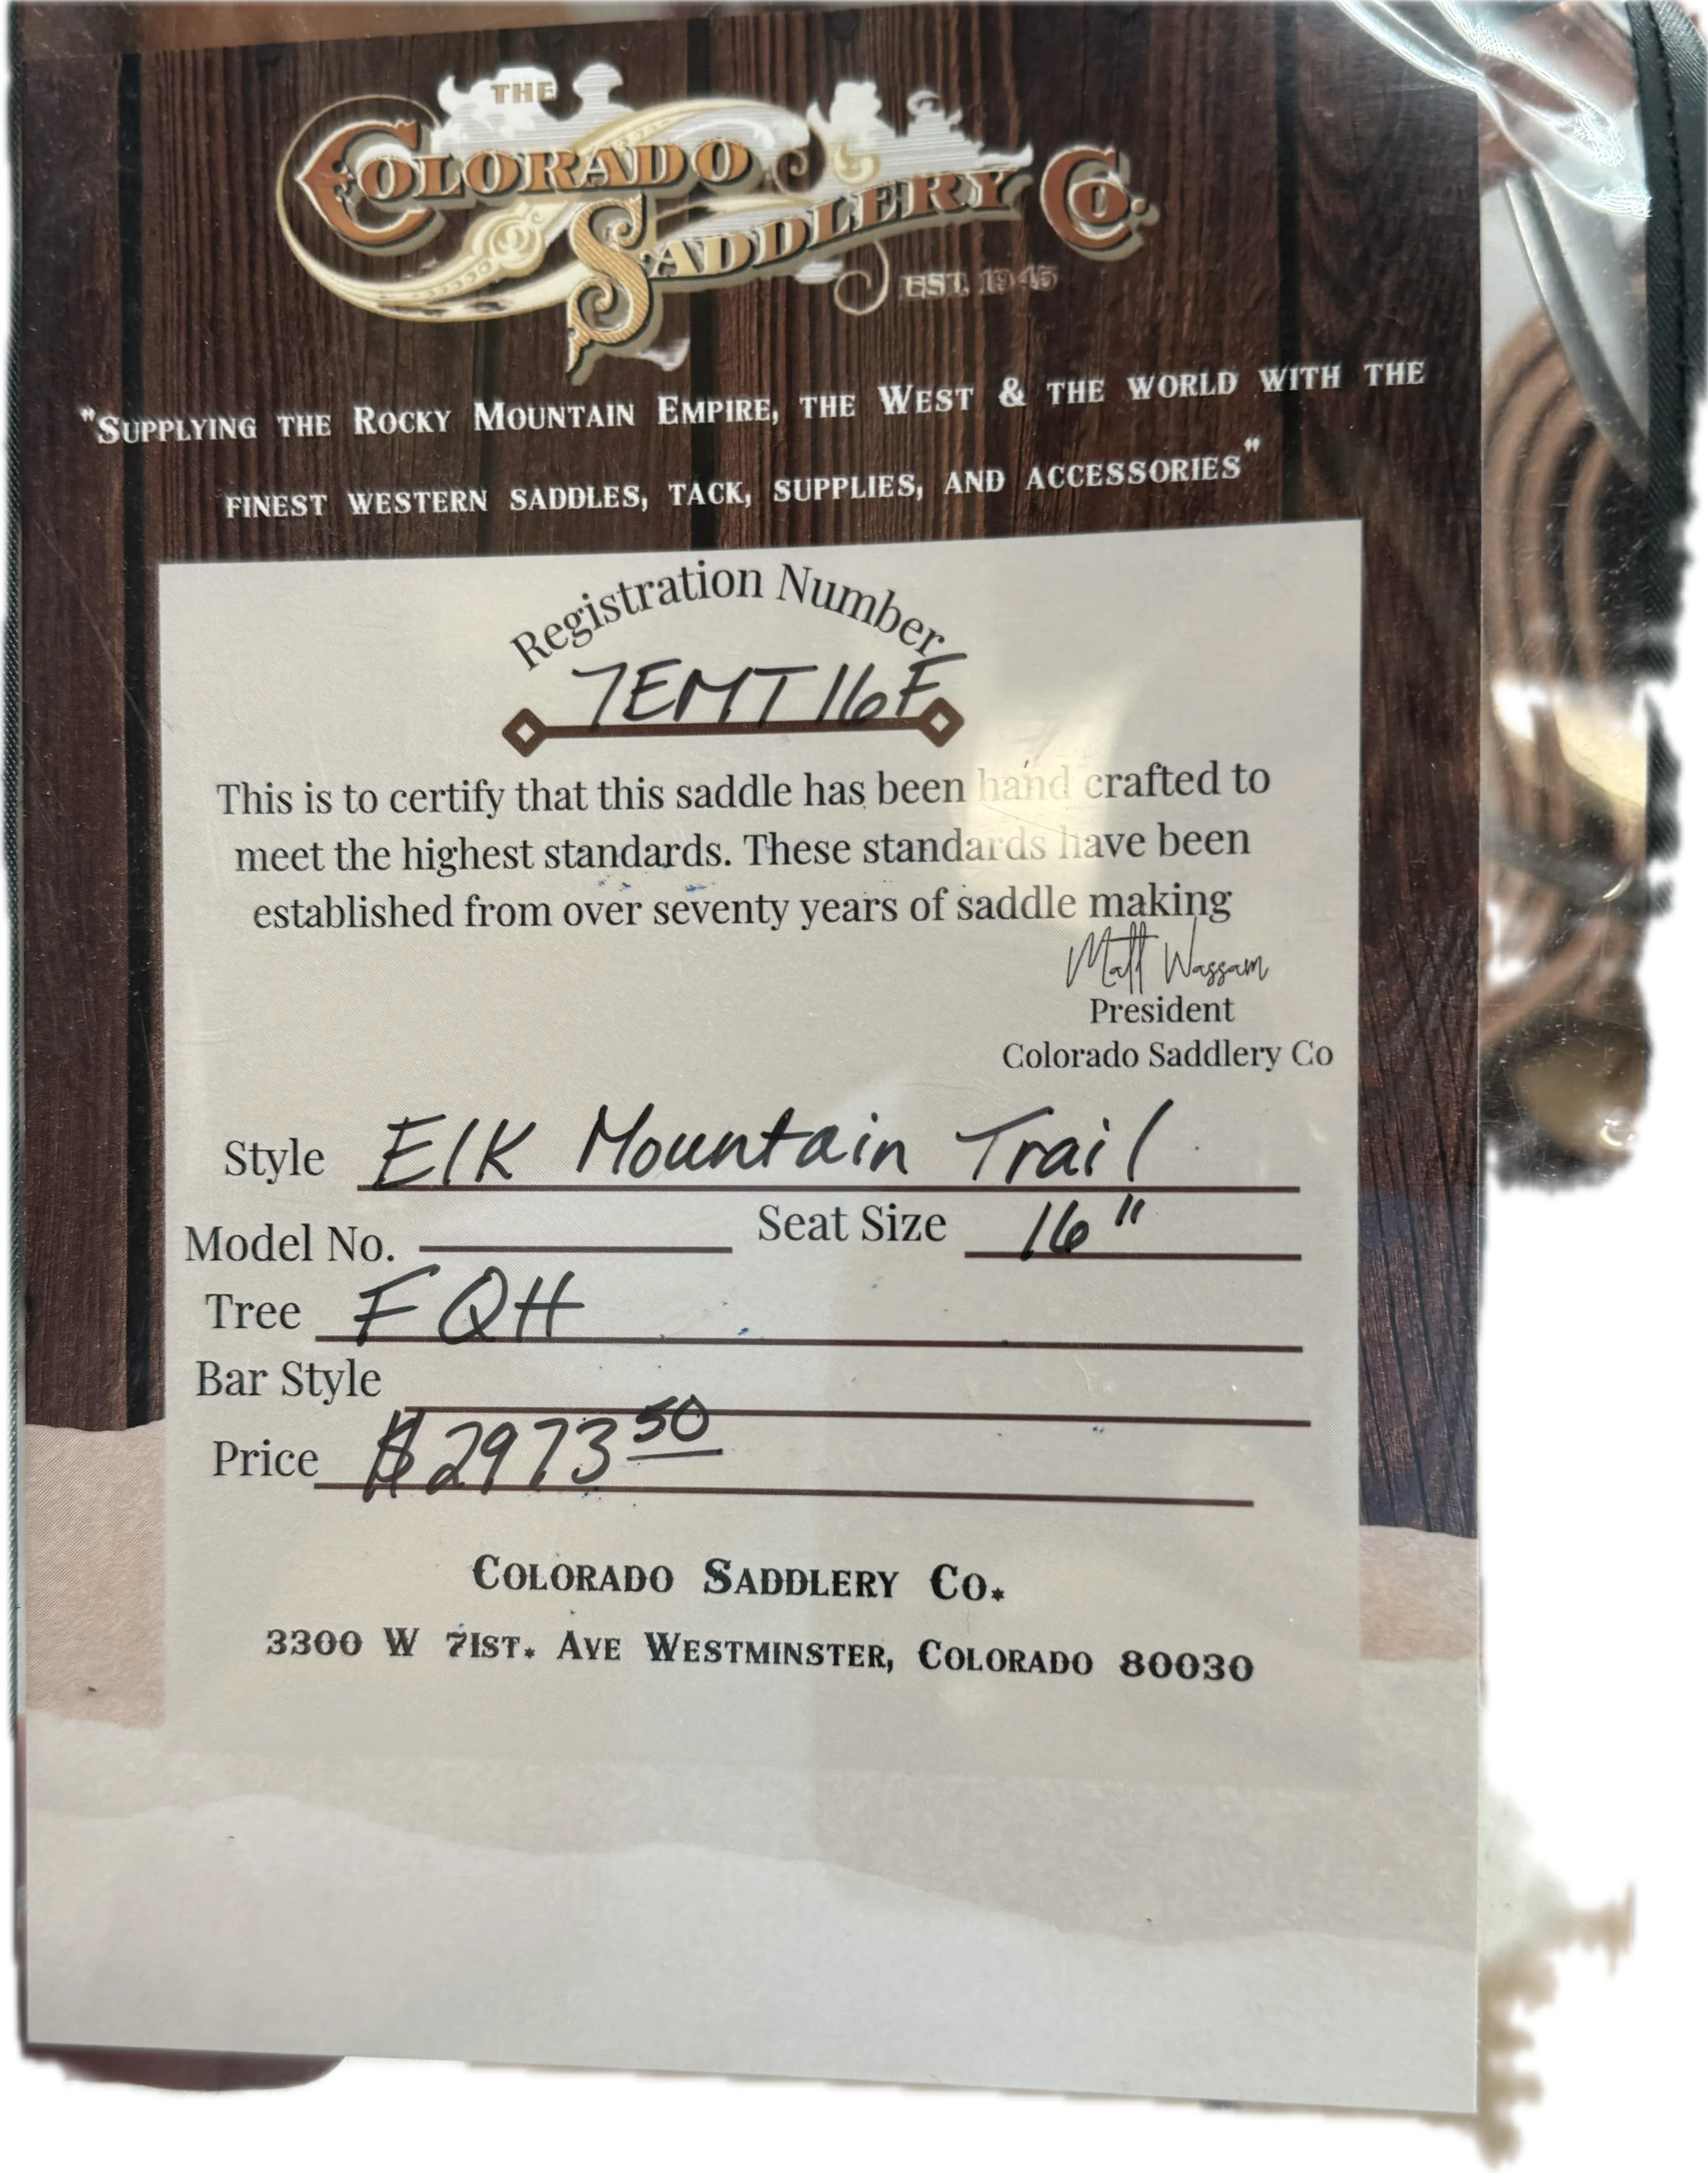 THE
COLORADO
SADDLERY CO.
EST. 1945
"SUPPLYING THE ROCKY MOUNTAIN EMPIRE, THE WEST & THE WORLD WITH THE
FINEST WESTERN SADDLES, TACK, SUPPLIES, AND ACCESSORIES"
Registration Number
7EMT16F
This is to certify that this saddle has been hand crafted to
meet the highest standards. These standards have been
established from over seventy years of saddle making
Matt Wassam
President
Colorado Saddlery Co
Style Elk Mountain Trail
Model No. Seat Size 16"
Tree FQH
Bar Style
Price $2973 50
COLORADO SADDLERY CO.
3300 W 71ST. AVE WESTMINSTER, COLORADO 80030